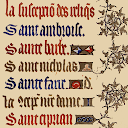 la suscepciõ des reliqs
Sainte ambroise.
Sainte barbe.
Saint nicolas
Sainte fare.
la ɔcepc̃ n̄re dame.
Saint ciprian